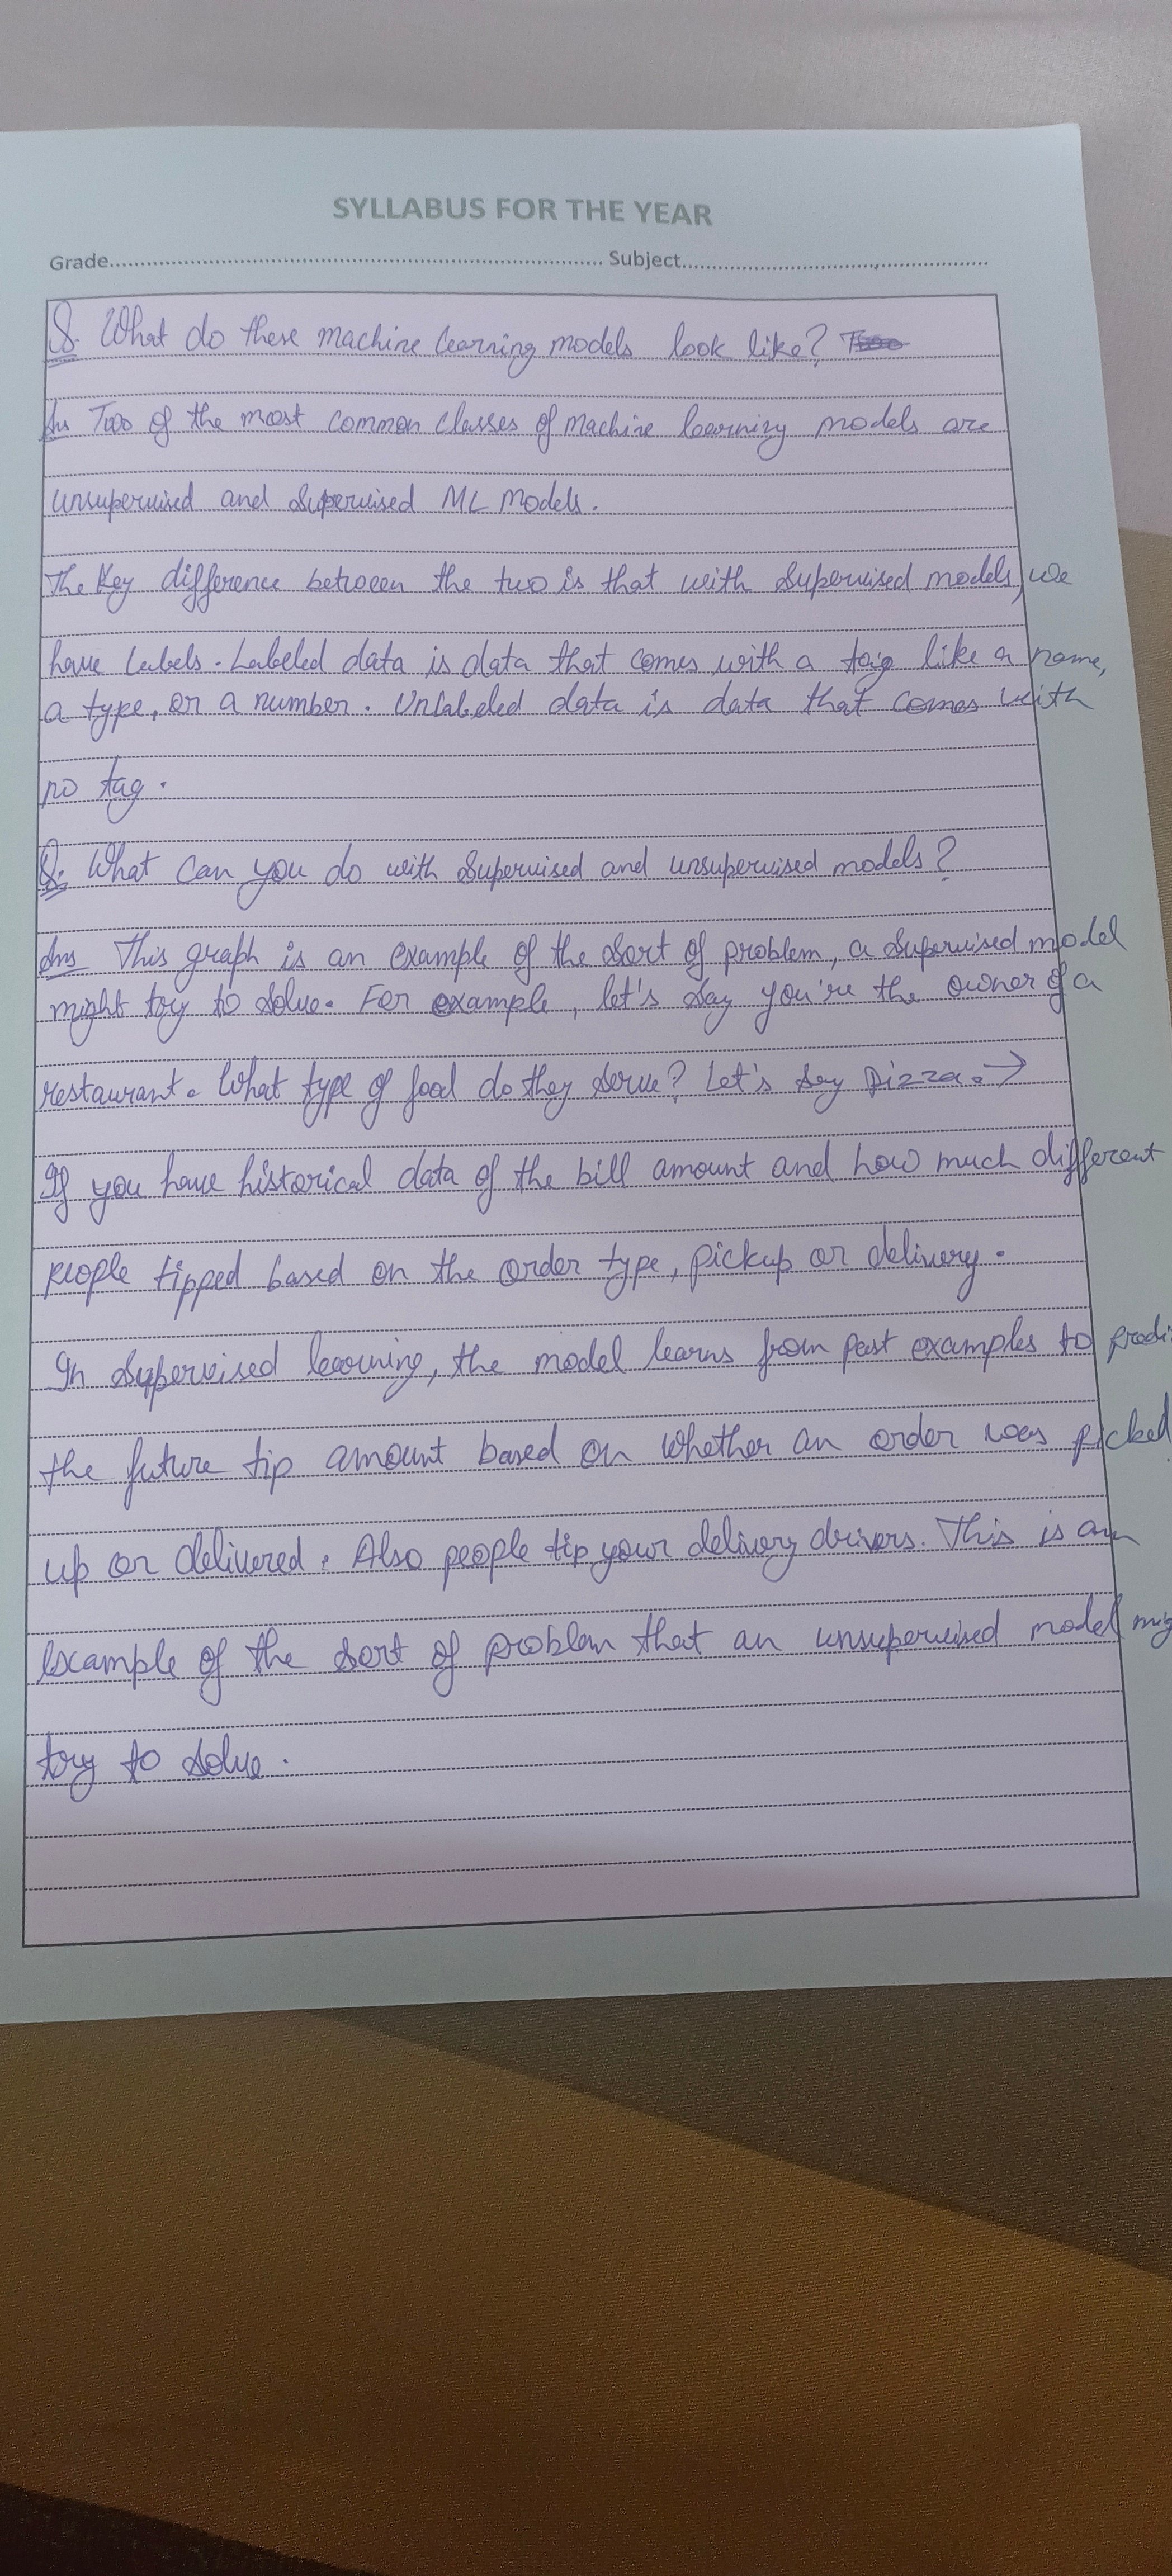 SYLLABUS FOR THE YEAR
Grade................................ Subject................................
Q. What do these machine learning models look like?
Ans Two of the most common classes of machine learning models are
unsupervised and supervised ML models.
The key difference between the two is that with supervised models, we
have labels. Labeled data is data that comes with a tag like a name,
a type, or a number. Unlabeled data is data that comes with
no tag.
Q: What can you do with supervised and unsupervised models?
Ans This graph is an example of the sort of problem, a supervised model
might try to solve. For example, let's say you're the owner of a
restaurant. What type of food do they serve? Let's say pizza. →
If you have historical data of the bill amount and how much different
people tipped based on the order type, pickup or delivery.
In supervised learning, the model learns from past examples to
the future tip amount based on whether an order was picked
up or delivered. Also people tip your delivery drivers. This is an
example of the sort of problem that an unsupervised model
try to solve.